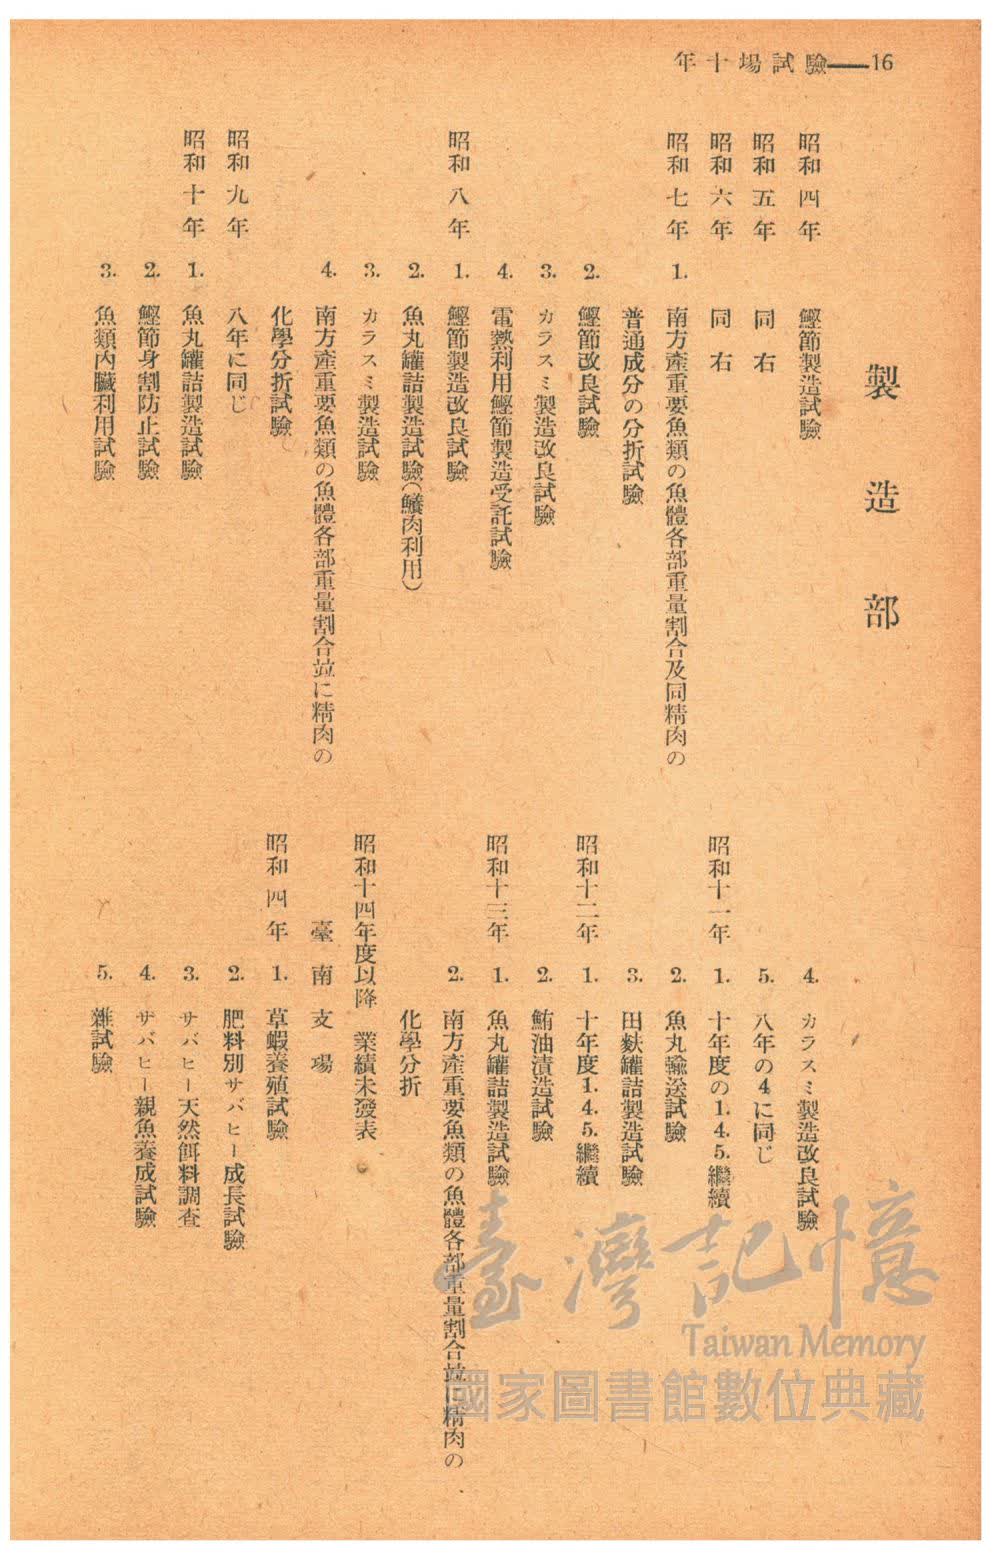 年十場試驗——16
製造部
昭和四年 鰹節製造試驗
昭和五年 同右
昭和六年 同右
昭和七年 1. 南方產重要魚類の魚體各部重量割合及同精肉の
普通成分の分折試驗
2. 鰹節改良試驗
3. カラスミ製造改良試驗
4. 電熱利用鰹節製造受託試驗
昭和八年 1. 鰹節製造改良試驗
2. 魚丸罐詰製造試驗(鱶肉利用)
3. カラスミ製造試驗
4. 南方產重要魚類の魚體各部重量割合竝に精肉の
化學分折試驗
昭和九年 八年に同じ
昭和十年 1. 魚丸罐詰製造試驗
2. 鰹節身割防止試驗
3. 魚類內臟利用試驗
4. カラスミ製造改良試驗
5. 八年の4に同じ
昭和十一年 1. 十年度の1.4.5.繼續
2. 魚丸輸送試驗
3. 田麩罐詰製造試驗
昭和十二年 1. 十年度1.4.5.繼續
2. 鮪油漬造試驗
昭和十三年 1. 魚丸罐詰製造試驗
2. 南方產重要魚類の魚體各部重量割合竝に精肉の
化學分折
昭和十四年度以降 業績未發表
臺南支場
昭和四年 1. 草蝦養殖試驗
2. 肥料別サバヒー成長試驗
3. サバヒー天然餌料調査
4. サバヒー親魚養成試驗
5. 雜試驗
臺灣記憶
Taiwan Memory
國家圖書館數位典藏